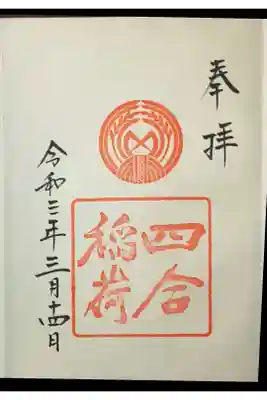 奉拝
四合
稲荷
令和三年三月十四日